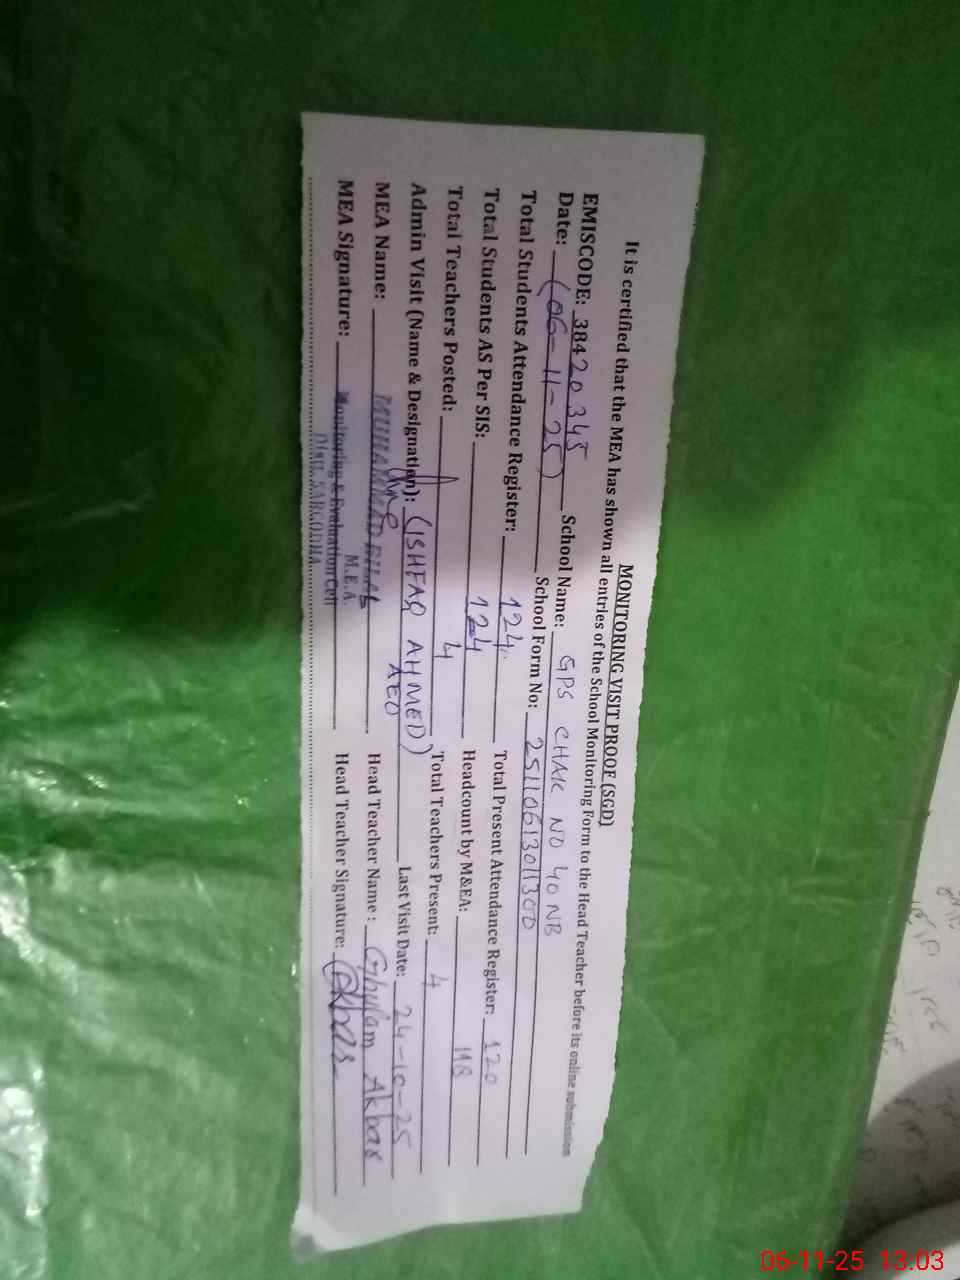 MONITORING VISIT PROOF (SGD)
It is certified that the MEA has shown all entries of the School Monitoring Form to the Head Teacher before its online submission
EMISCODE: 38420345 School Name: GPS CHAK NO 40 NB
Date: (06-11-25) School Form No: 251106130113OD
Total Students Attendance Register: 124 Total Present Attendance Register: 120
Total Students AS Per SIS: 124 Headcount by M&EA: 118
Total Teachers Posted: 4 Total Teachers Present: 4
Admin Visit (Name & Designation): (ISHFAQ AHMED) AEO Last Visit Date: 24-10-25
MEA Name: MUHAMMAD BILAL Head Teacher Name : Ghulam Akbar
M.E.A.
MEA Signature: Monitoring & Evaluation Cell Head Teacher Signature: Akbar
Distt. SARGODHA
06-11-25 13.03